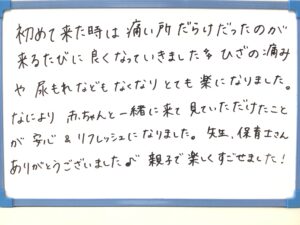 初めて来た時は痛い所だらけだったのが
来るたびに良くなっていきました♪ ひざの痛み
や尿もれなどもなくなりとても楽になりました。
なにより赤ちゃんと一緒に来て見ていただけたこと
が安心&リフレッシュになりました。先生、保育士さん
ありがとうございました♪ 親子で楽しくすごせました!